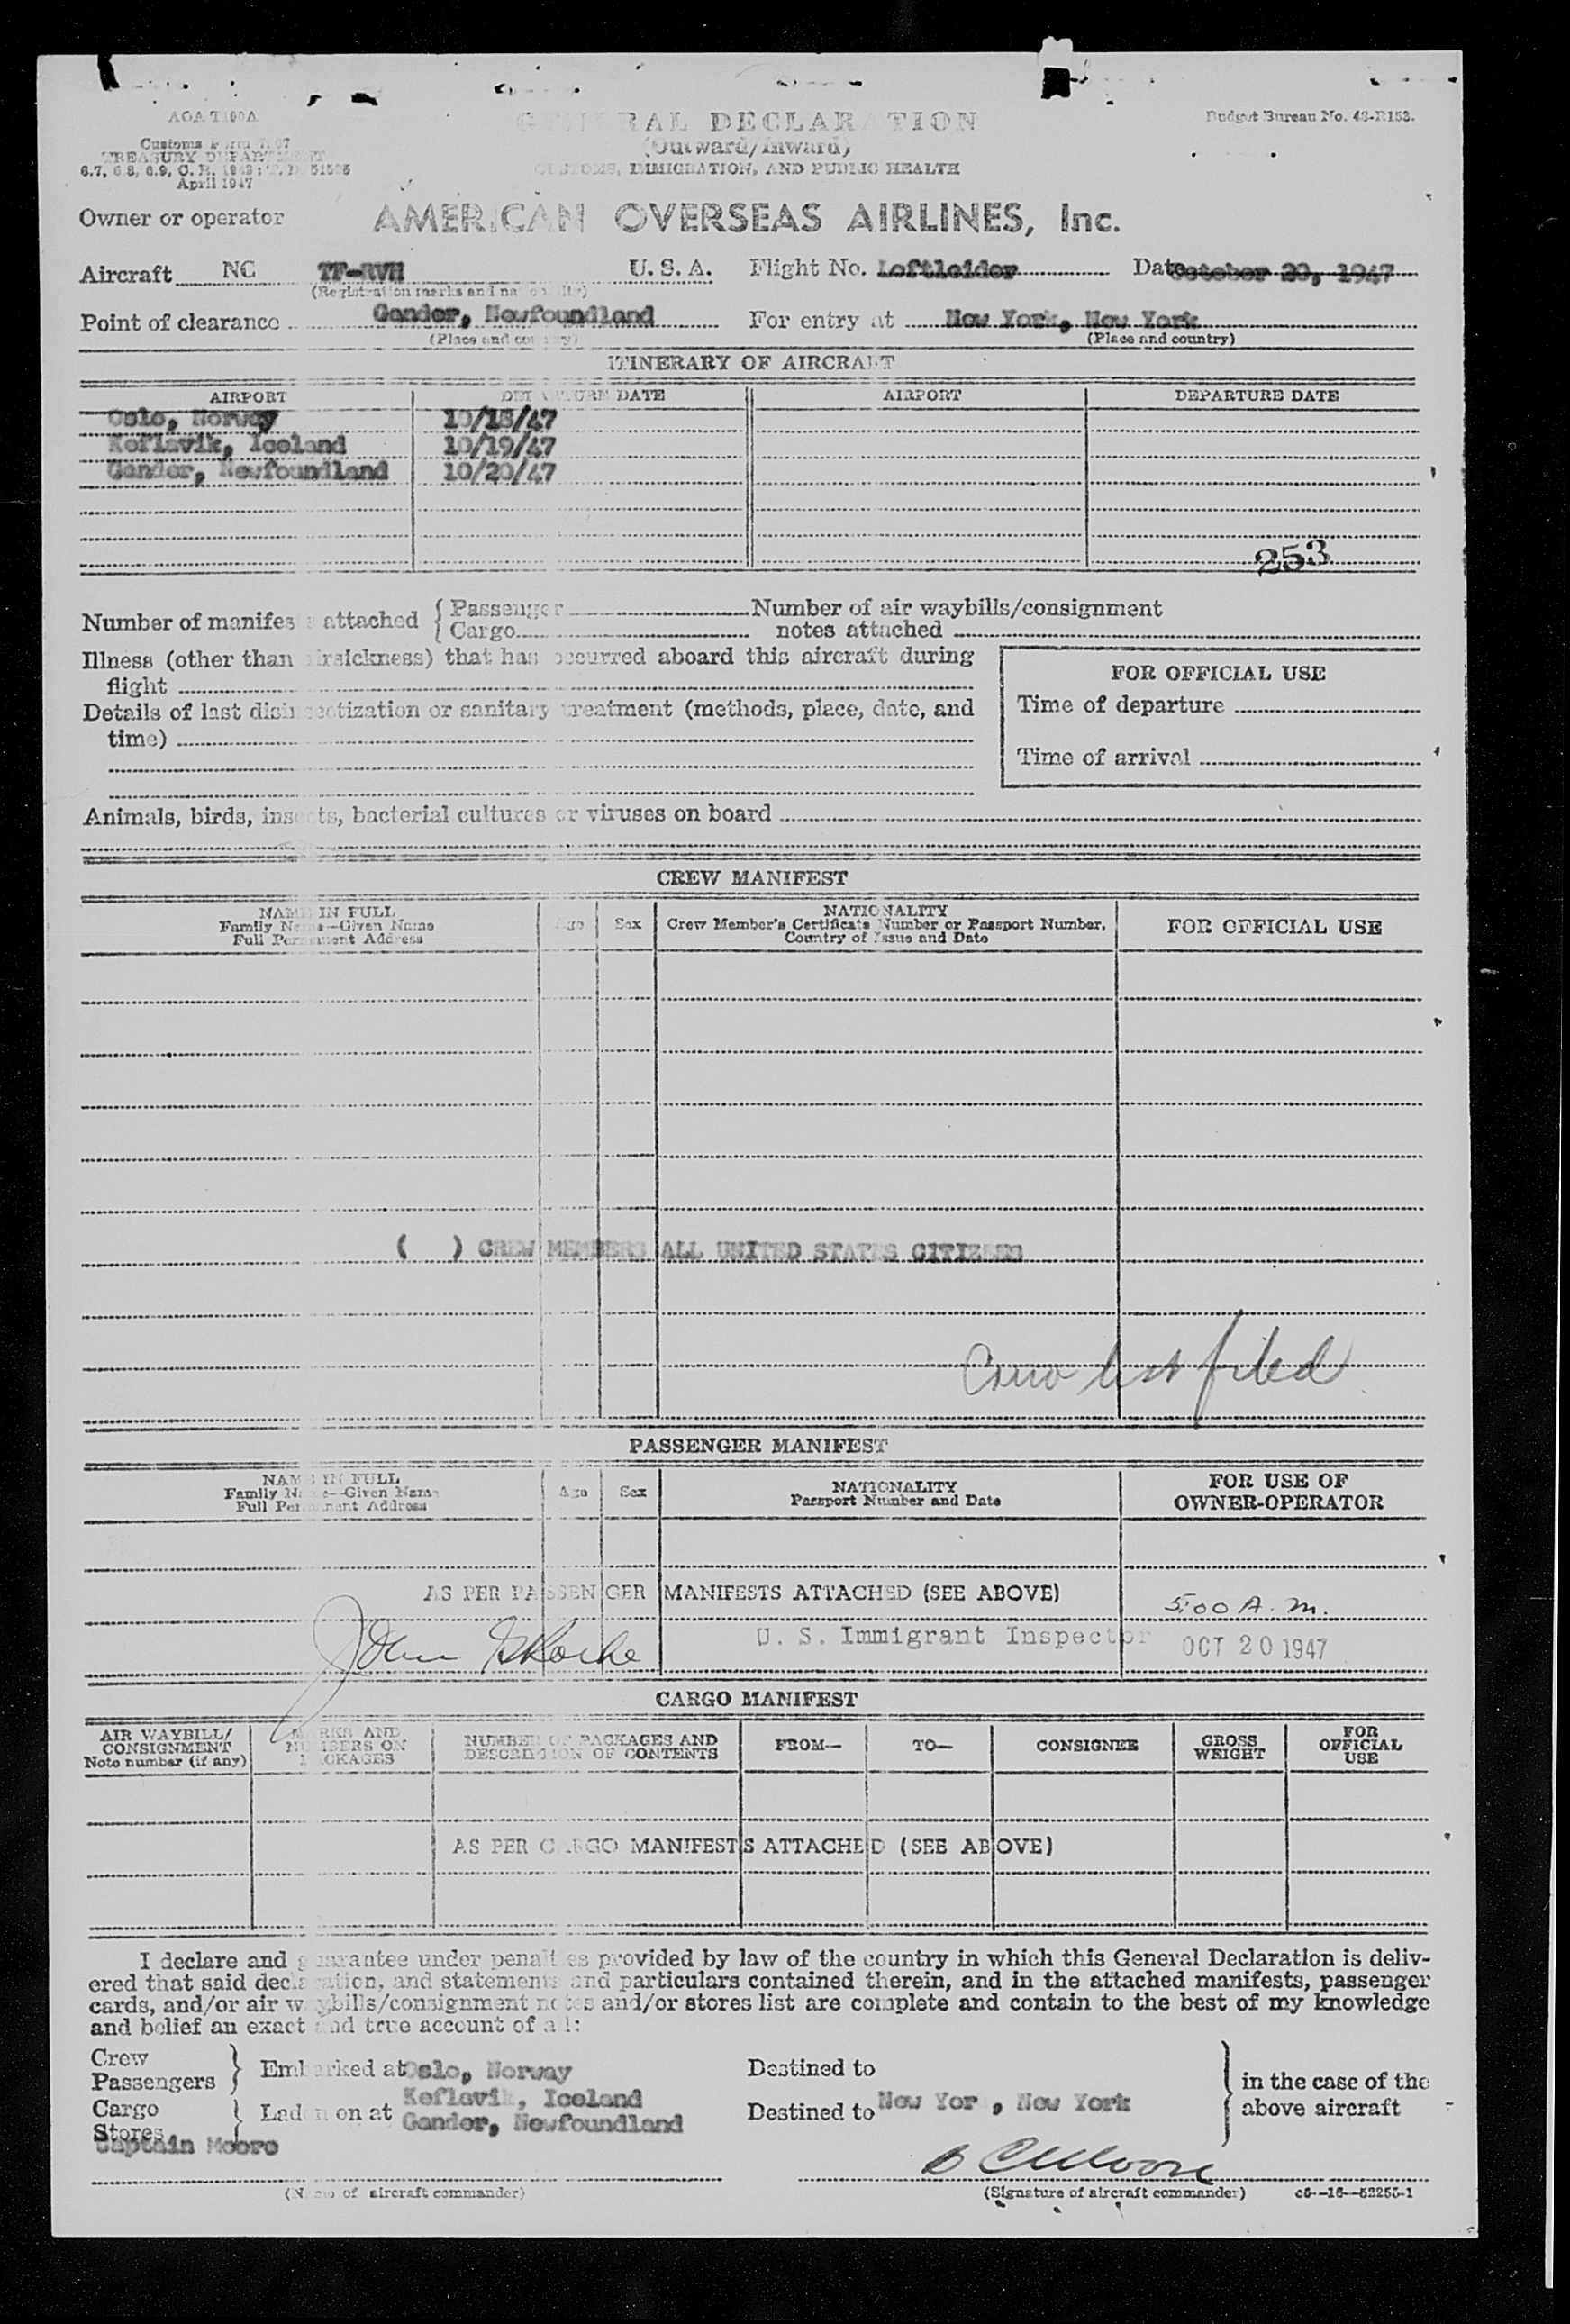 AOA T100A
Budget Bureau No. 48-R153.
GENERAL DECLARATION
(Outward/Inward)
CUSTOMS, IMMIGRATION, AND PUBLIC HEALTH
Customs Form 7507
TREASURY DEPARTMENT
6.7, 6.8, 6.9, C. R.
April 1947
Owner or operator AMERICAN OVERSEAS AIRLINES, Inc.
Aircraft NC TF-RVH U. S. A. Flight No. Loftleider Date October 20, 1947
(Registration marks and nationality)
Point of clearance Gander, Newfoundland For entry at New York, New York
(Place and country) (Place and country)
ITINERARY OF AIRCRAFT
AIRPORT DEPARTURE DATE AIRPORT DEPARTURE DATE
Oslo, Norway 10/18/47
Keflavik, Iceland 10/19/47
Gander, Newfoundland 10/20/47
253
Number of manifests attached { Passenger Number of air waybills/consignment
{ Cargo notes attached
Illness (other than airsickness) that has occurred aboard this aircraft during
flight
FOR OFFICIAL USE
Details of last disinsectization or sanitary treatment (methods, place, date, and
time)
Time of departure
Time of arrival
Animals, birds, insects, bacterial cultures or viruses on board
CREW MANIFEST
NAME IN FULL
Family Name—Given Name
Full Permanent Address
Age Sex
NATIONALITY
Crew Member's Certificate Number or Passport Number,
Country of Issue and Date
FOR OFFICIAL USE
( ) CREW MEMBERS ALL UNITED STATES CITIZENS
Crew list filed
PASSENGER MANIFEST
NAME IN FULL
Family Name—Given Name
Full Permanent Address
Age Sex
NATIONALITY
Passport Number and Date
FOR USE OF
OWNER-OPERATOR
AS PER PASSENGER MANIFESTS ATTACHED (SEE ABOVE)
5:00 A.m.
John
U. S. Immigrant Inspector OCT 20 1947
CARGO MANIFEST
AIR WAYBILL/
CONSIGNMENT
Note number (if any)
MARKS AND
NUMBERS ON
PACKAGES
NUMBER OF PACKAGES AND
DESCRIPTION OF CONTENTS
FROM—
TO—
CONSIGNEE
GROSS
WEIGHT
FOR
OFFICIAL
USE
AS PER CARGO MANIFESTS ATTACHED (SEE ABOVE)
I declare and guarantee under penalties provided by law of the country in which this General Declaration is deliv-
ered that said declaration, and statements and particulars contained therein, and in the attached manifests, passenger
cards, and/or air waybills/consignment notes and/or stores list are complete and contain to the best of my knowledge
and belief an exact and true account of all:
Crew
Passengers } Embarked at Oslo, Norway Destined to
Keflavik, Iceland
Cargo
Stores } Laden on at Gander, Newfoundland Destined to New York, New York
} in the case of the
above aircraft
Captain Moore
B C Moore
(Name of aircraft commander) (Signature of aircraft commander) c6—16—52255-1